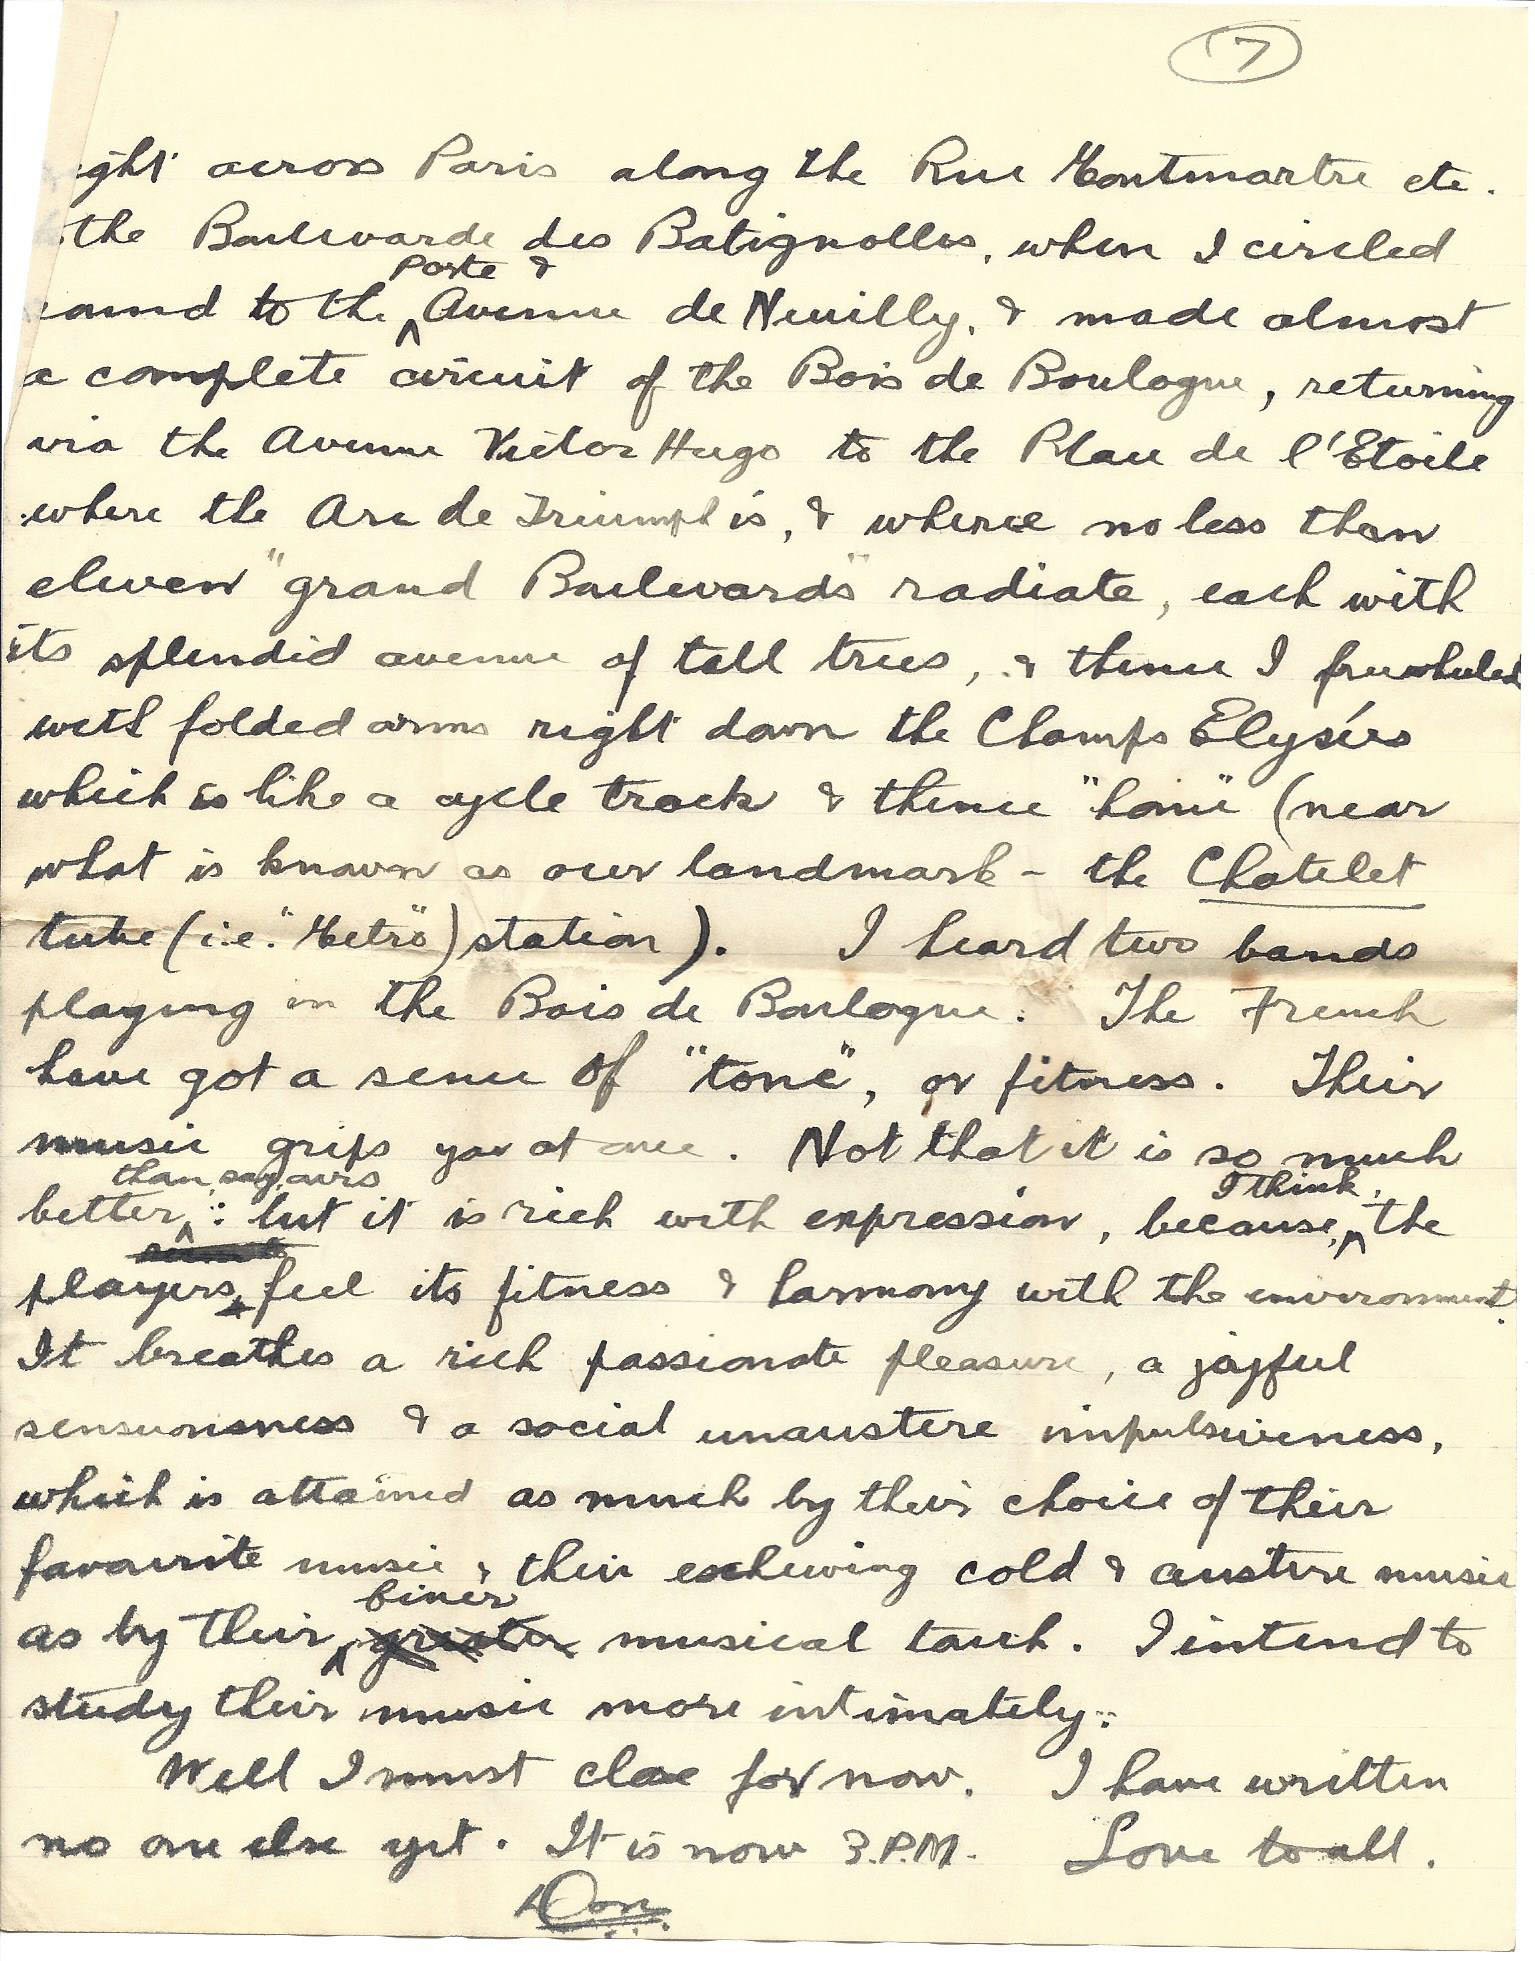 7
ight across Paris along the Rue Montmartre etc.
the Boulevarde des Batignolles, when I circled
porte &
round to the Avenue de Neuilly, & made almost
a complete circuit of the Bois de Boulogne, returning
via the Avenue Victor Hugo to the Place de l'Etoile
where the Arc de Triumph is, & whence no less than
eleven "grand Boulevards" radiate, each with
its splendid avenue of tall trees, & thence I freewheeled
with folded arms right down the Champs Elysées
which is like a cycle track & thence "home" (near
what is known as our landmark - the Chatelet
tube (i.e. "Metro") station). I heard two bands
playing in the Bois de Boulogne. The French
have got a sense of "tone", or fitness. Their
music grips you at once. Not that it is so much
than, say, ours I think,
better: but it is rich with expression, because, the
players feel its fitness & harmony with the environment.
It breathes a rich passionate pleasure, a joyful
sensuousness & a social unaustere impulsiveness,
which is attained as much by their choice of their
favourite music & their eschewing cold & austere music
finer
as by their greater musical touch. I intend to
study their music more intimately.
Well I must close for now. I have written
no one else yet. It is now 3.P.M. Love to all.
Don.